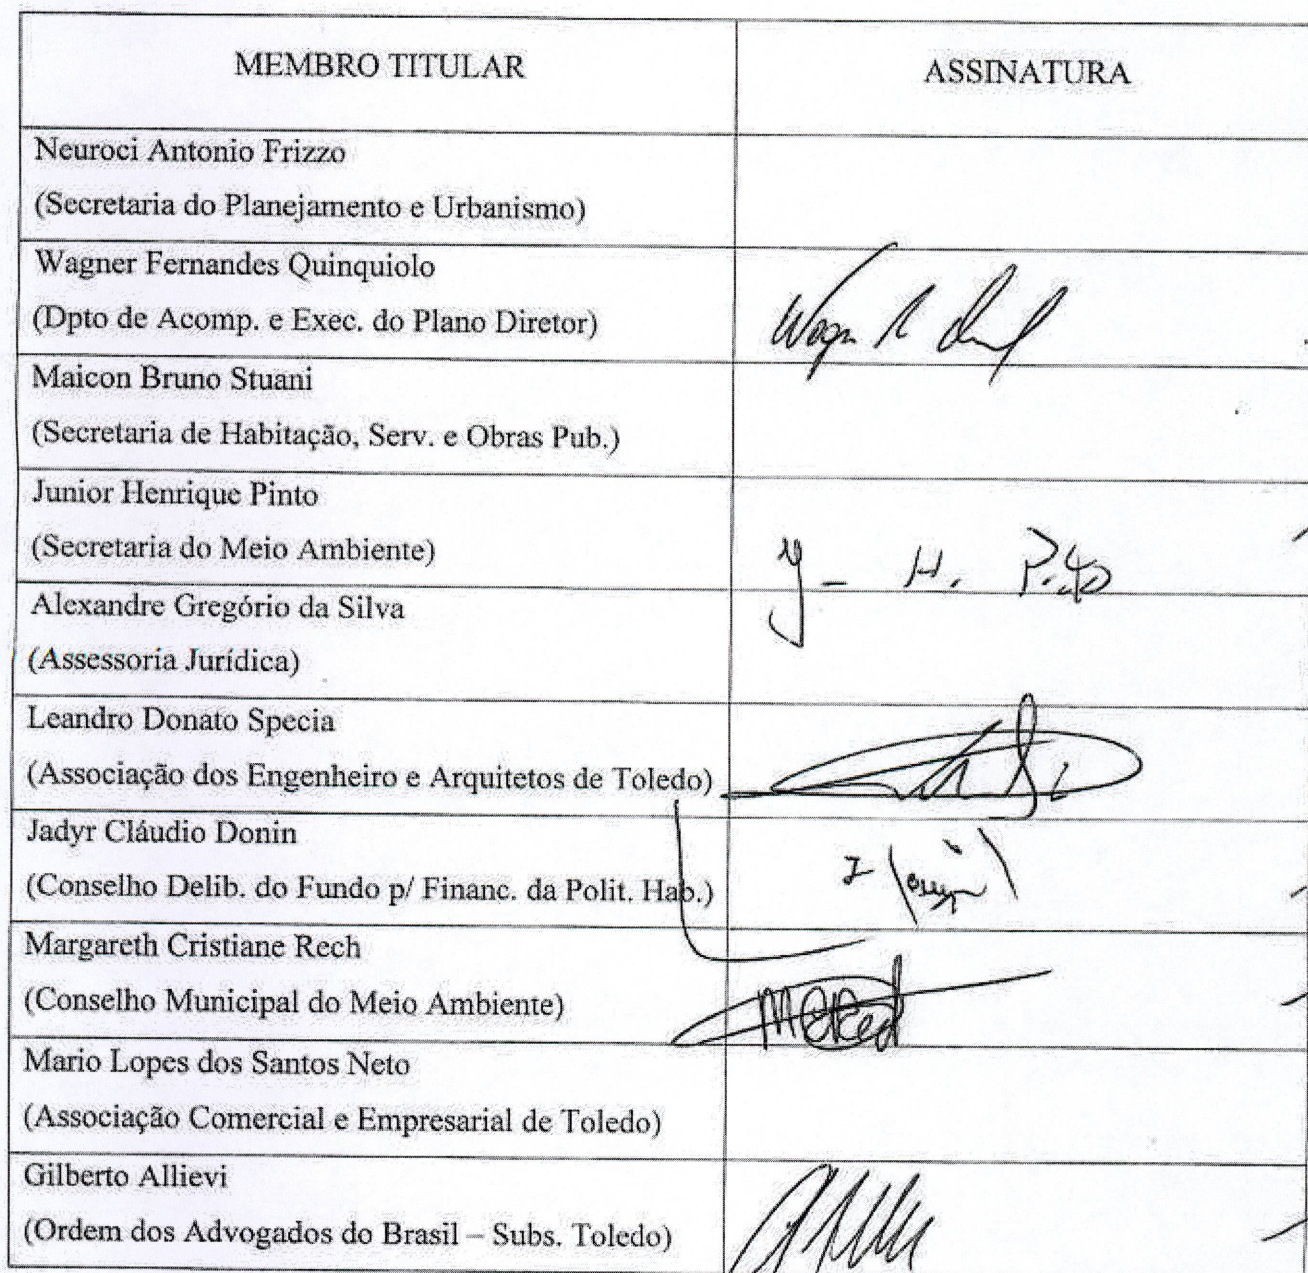 MEMBRO TITULAR
ASSINATURA
Neuroci Antonio Frizzo
(Secretaria do Planejamento e Urbanismo)
Wagner Fernandes Quinquiolo
(Dpto de Acomp. e Exec. do Plano Diretor)
Maicon Bruno Stuani
(Secretaria de Habitação, Serv. e Obras Pub.)
Junior Henrique Pinto
(Secretaria do Meio Ambiente)
H. Pinto
Alexandre Gregório da Silva
(Assessoria Jurídica)
Leandro Donato Specia
(Associação dos Engenheiro e Arquitetos de Toledo)
Jadyr Cláudio Donin
(Conselho Delib. do Fundo p/ Financ. da Polit. Hab.)
Margareth Cristiane Rech
(Conselho Municipal do Meio Ambiente)
Mario Lopes dos Santos Neto
(Associação Comercial e Empresarial de Toledo)
Gilberto Allievi
(Ordem dos Advogados do Brasil – Subs. Toledo)